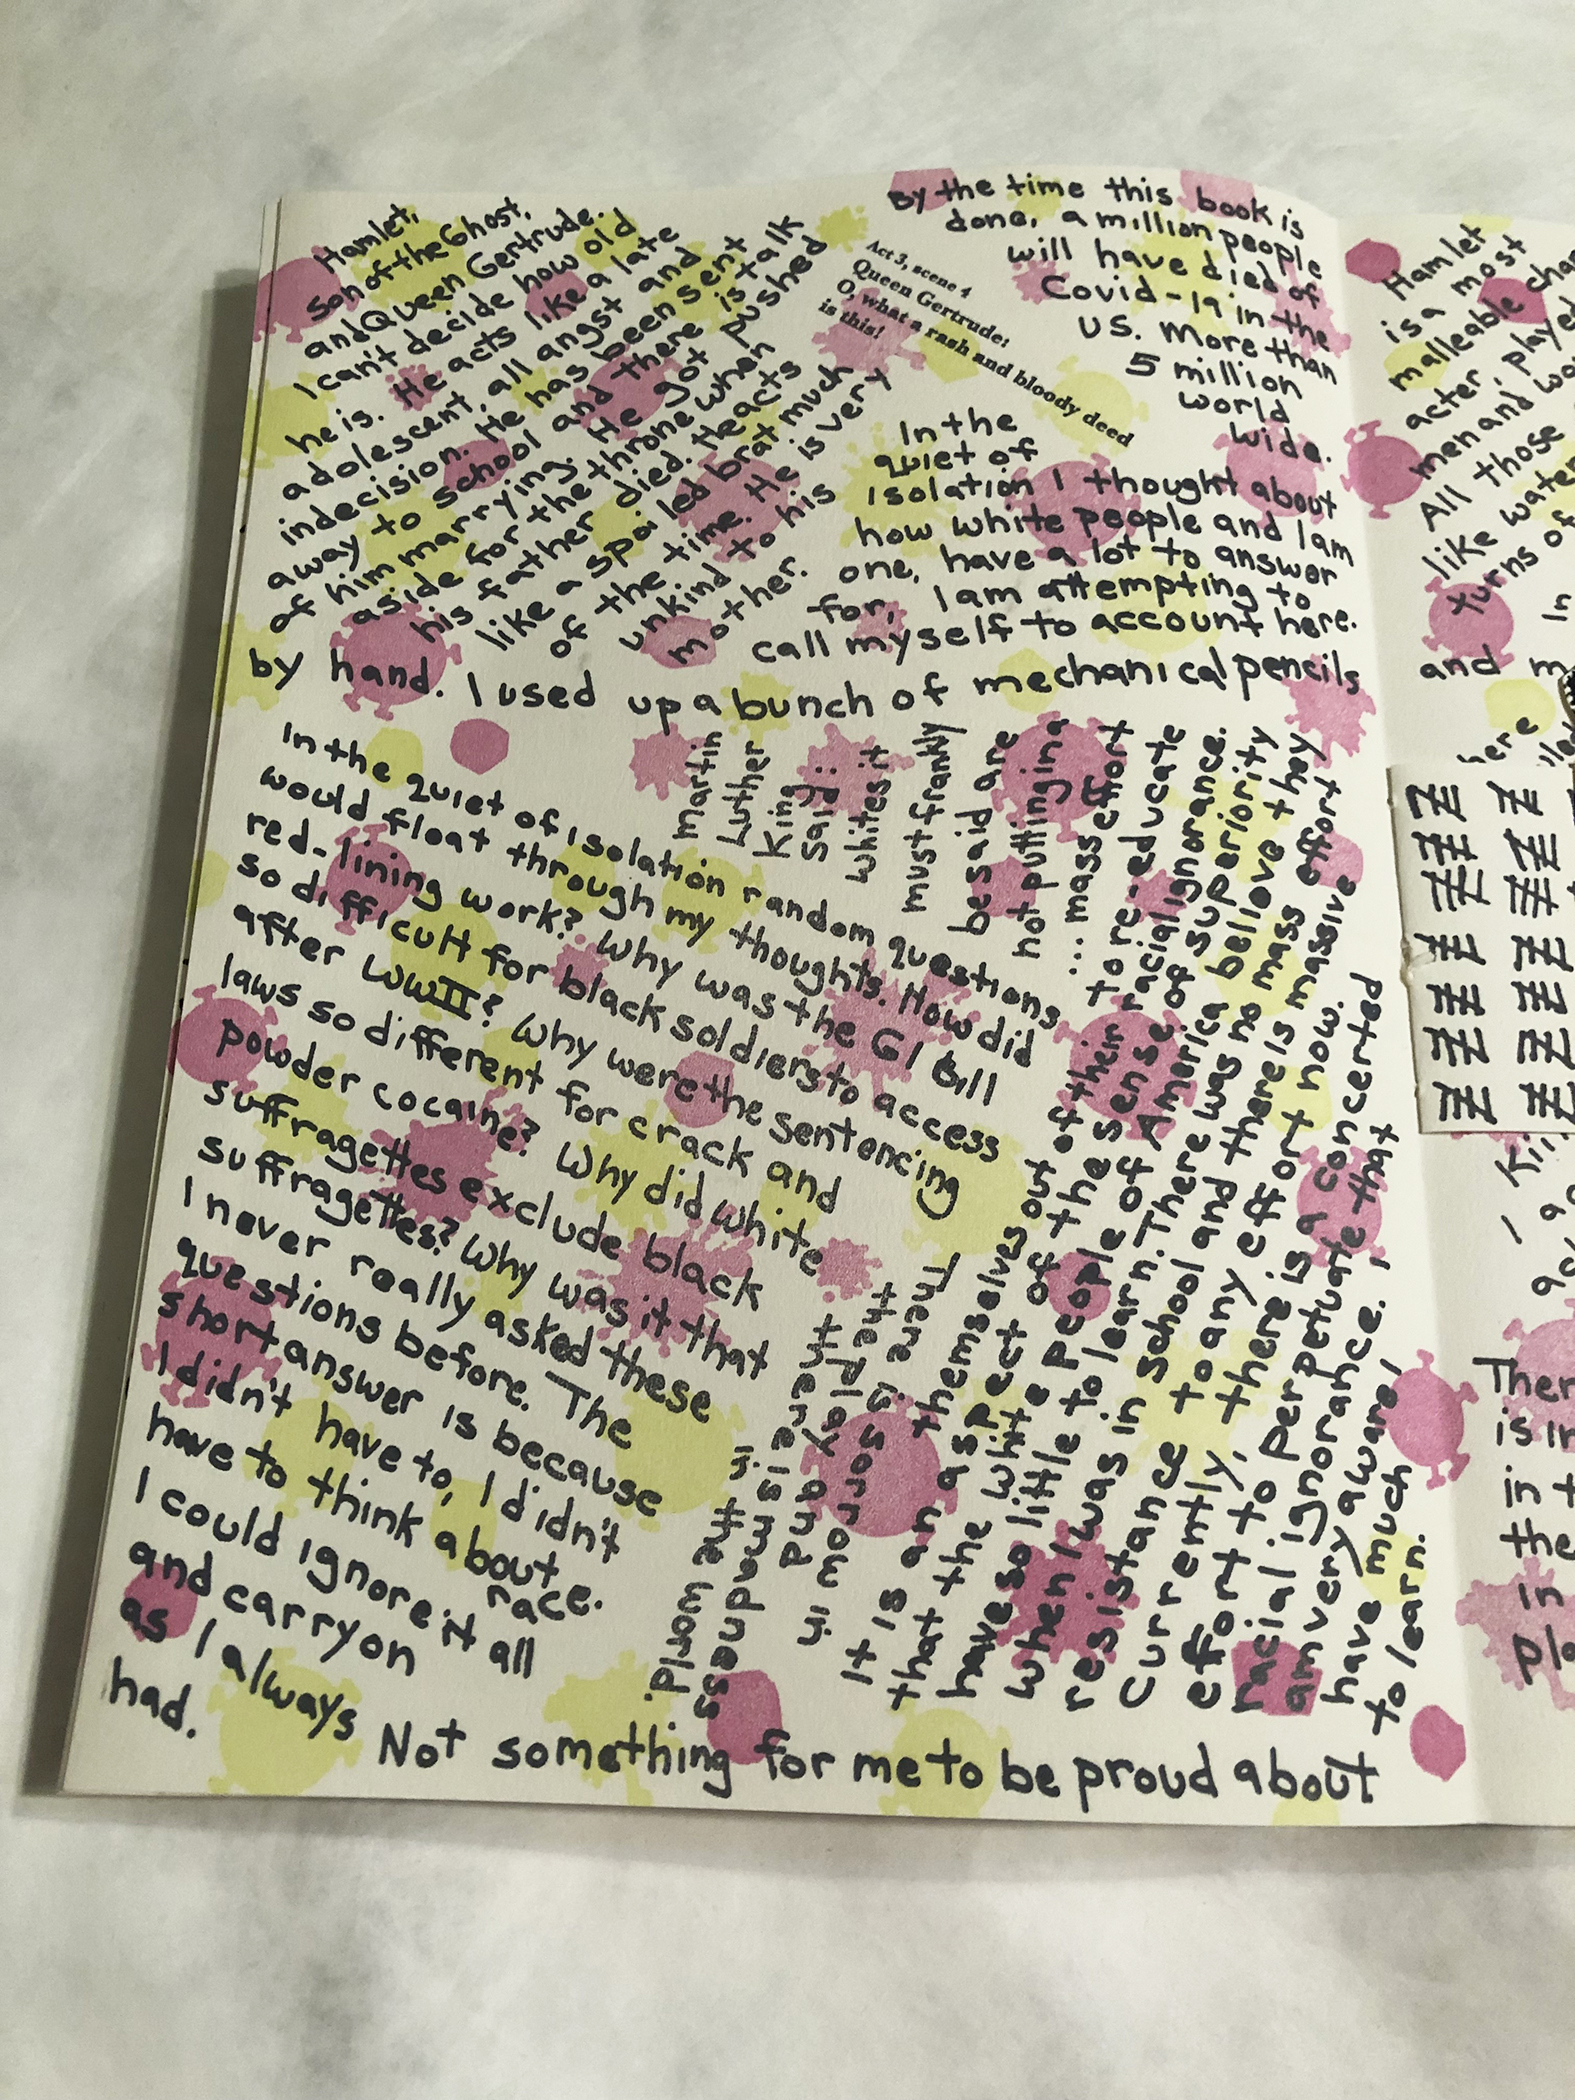 Hamlet,
son of the Ghost,
and Queen Gertrude.
I can't decide how old
he is. He acts like a late
adolescent, all angst and
indecision. He has been sent
away to school and there is talk
of him marrying. He got pushed
aside for the throne when
his father died. He acts
like a spoiled brat much
of the time. He is very
unkind to his
mother.
Act 3, scene 4
Queen Gertrude:
O, what a rash and bloody deed
is this!
By the time this book is
done, a million people
will have died of
Covid-19 in the
US. More than
5 million
world
wide.
In the
quiet of
isolation I thought about
how white people and I am
one, have a lot to answer
for, I am attempting to
call myself to account here.
by hand. I used up a bunch of mechanical pencils
In the quiet of isolation random questions
would float through my thoughts. How did
red-lining work? Why was the GI Bill
so difficult for black soldiers to access
after WWII? Why were the sentencing
laws so different for crack and
powder cocaine? Why did white
suffragettes exclude black
suffragettes? Why was it that
I never really asked these
questions before. The
short answer is because
I didn't have to, I didn't
have to think about
race.
I could ignore it all
and carry on
as I always
had.
Martin
Luther
King
said:
whites it
must frankly
be said are
not putting in a
... mass effort
to re-educate
themselves out of their racial ignorance.
It is an aspect of the sense of superiority
that the white people of America believe they
have so little to learn. There was no mass effort
when I was in school and there is massive
resistance to any effort now.
Currently, there is a concerted
effort to perpetuate that
racial ignorance. I
am very aware I
have much
to learn.
There is madness
in the world.
There is sorrow in
the play and
in
Not something for me to be proud about
Hamlet
is a most
malleable char
acter, played
men and wo
All those
like water
turns of
in
and m
here
I
Ther
is in
in t
the
in
pla